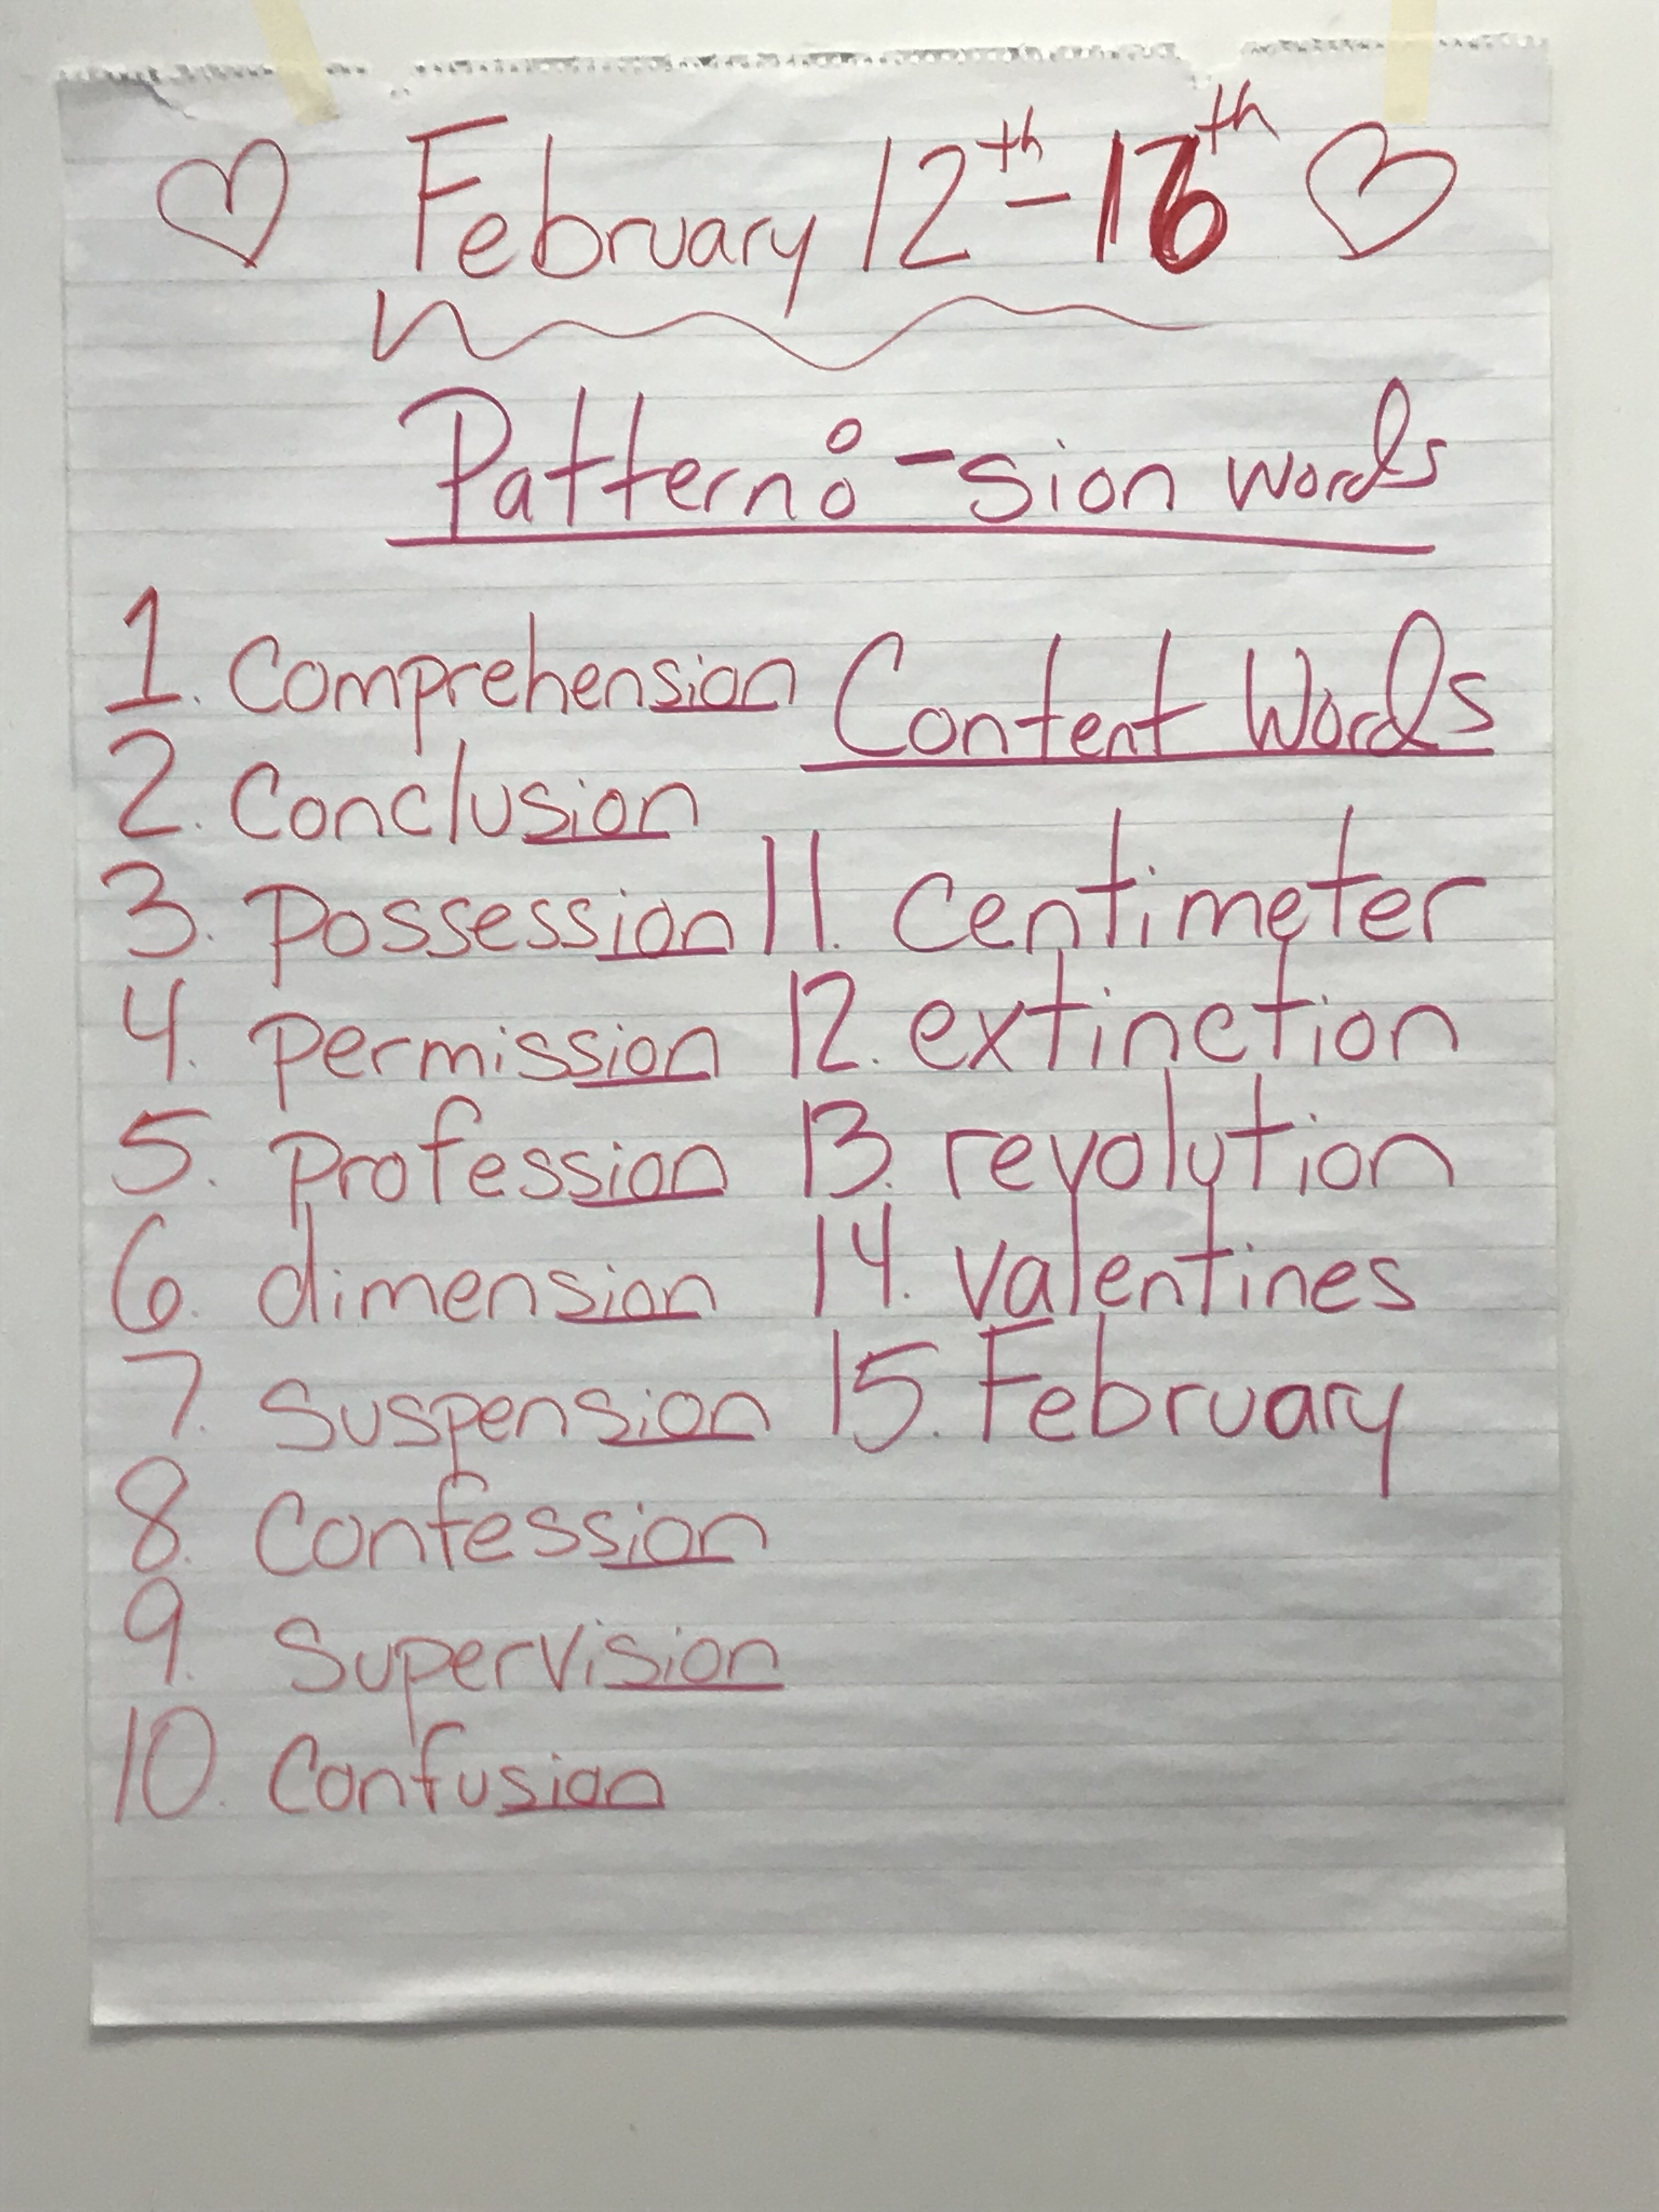 February 12th - 16th
Pattern: -sion words
1. Comprehension
2. Conclusion
3. Possession
4. permission
5. Profession
6. dimension
7. Suspension
8. Confession
9. Supervision
10. Confusion
Content Words
11. Centimeter
12. extinction
13. revolution
14. valentines
15. February